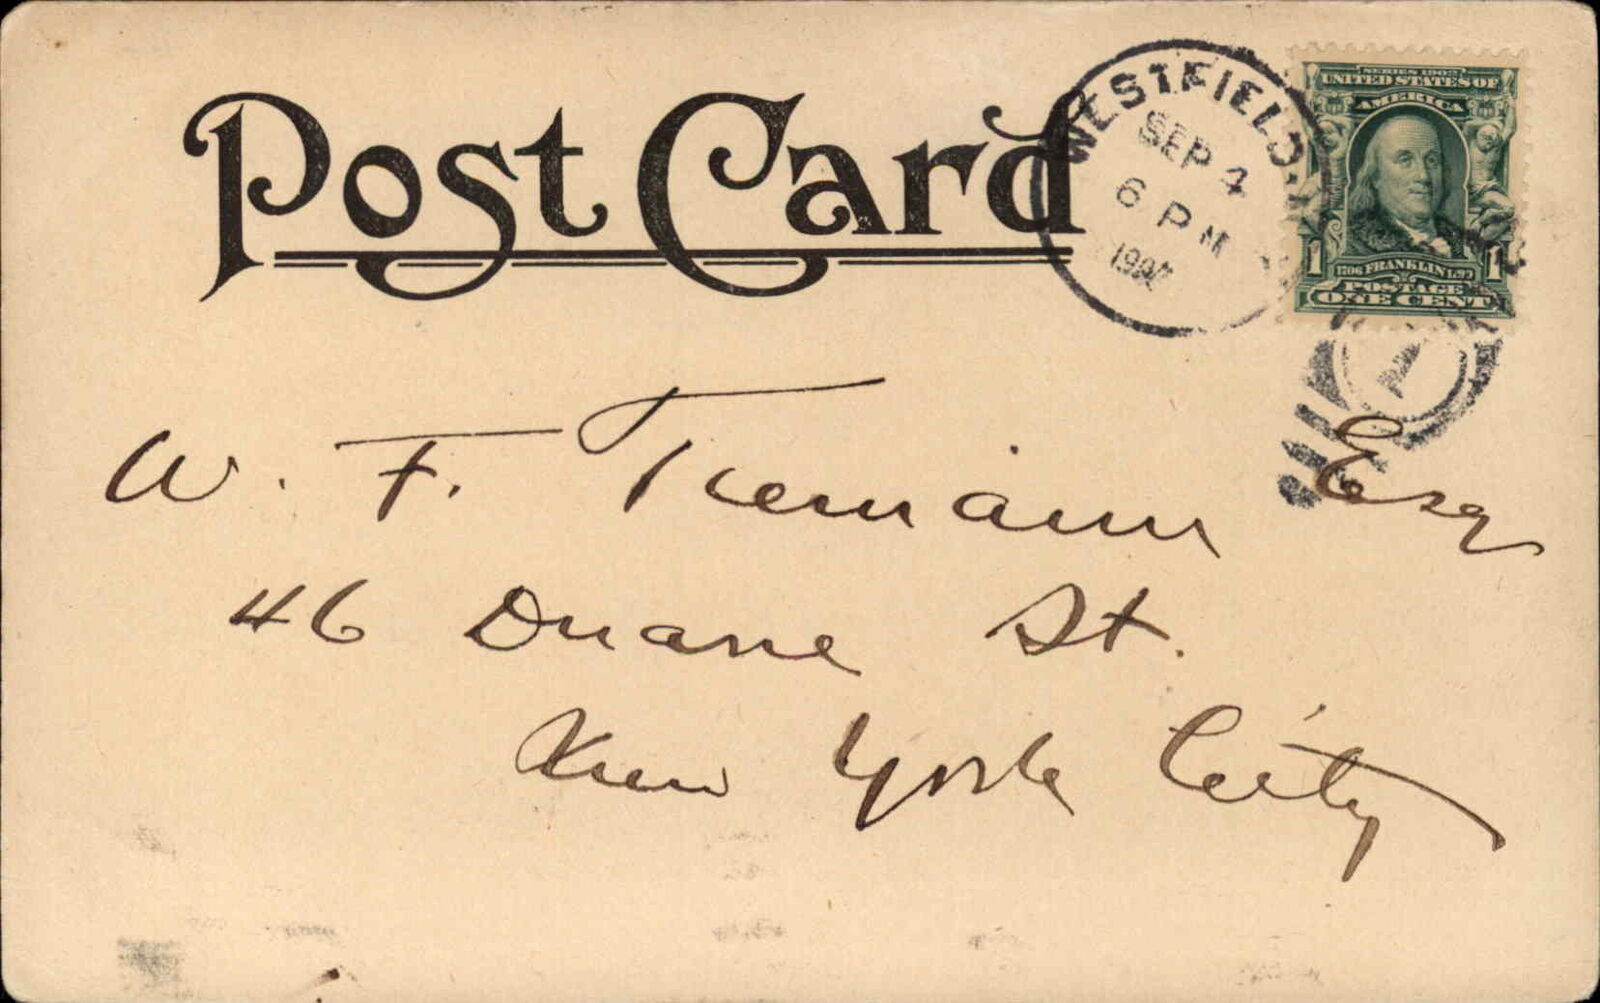 Post Card
WESTFIELD
SEP 4
6 PM
SERIES 1902
UNITED STATES OF
AMERICA
1 1
1706 FRANKLIN 1790
POSTAGE
ONE CENT
1
W. F. Tiemann Esq
46 Duane St.
New York City